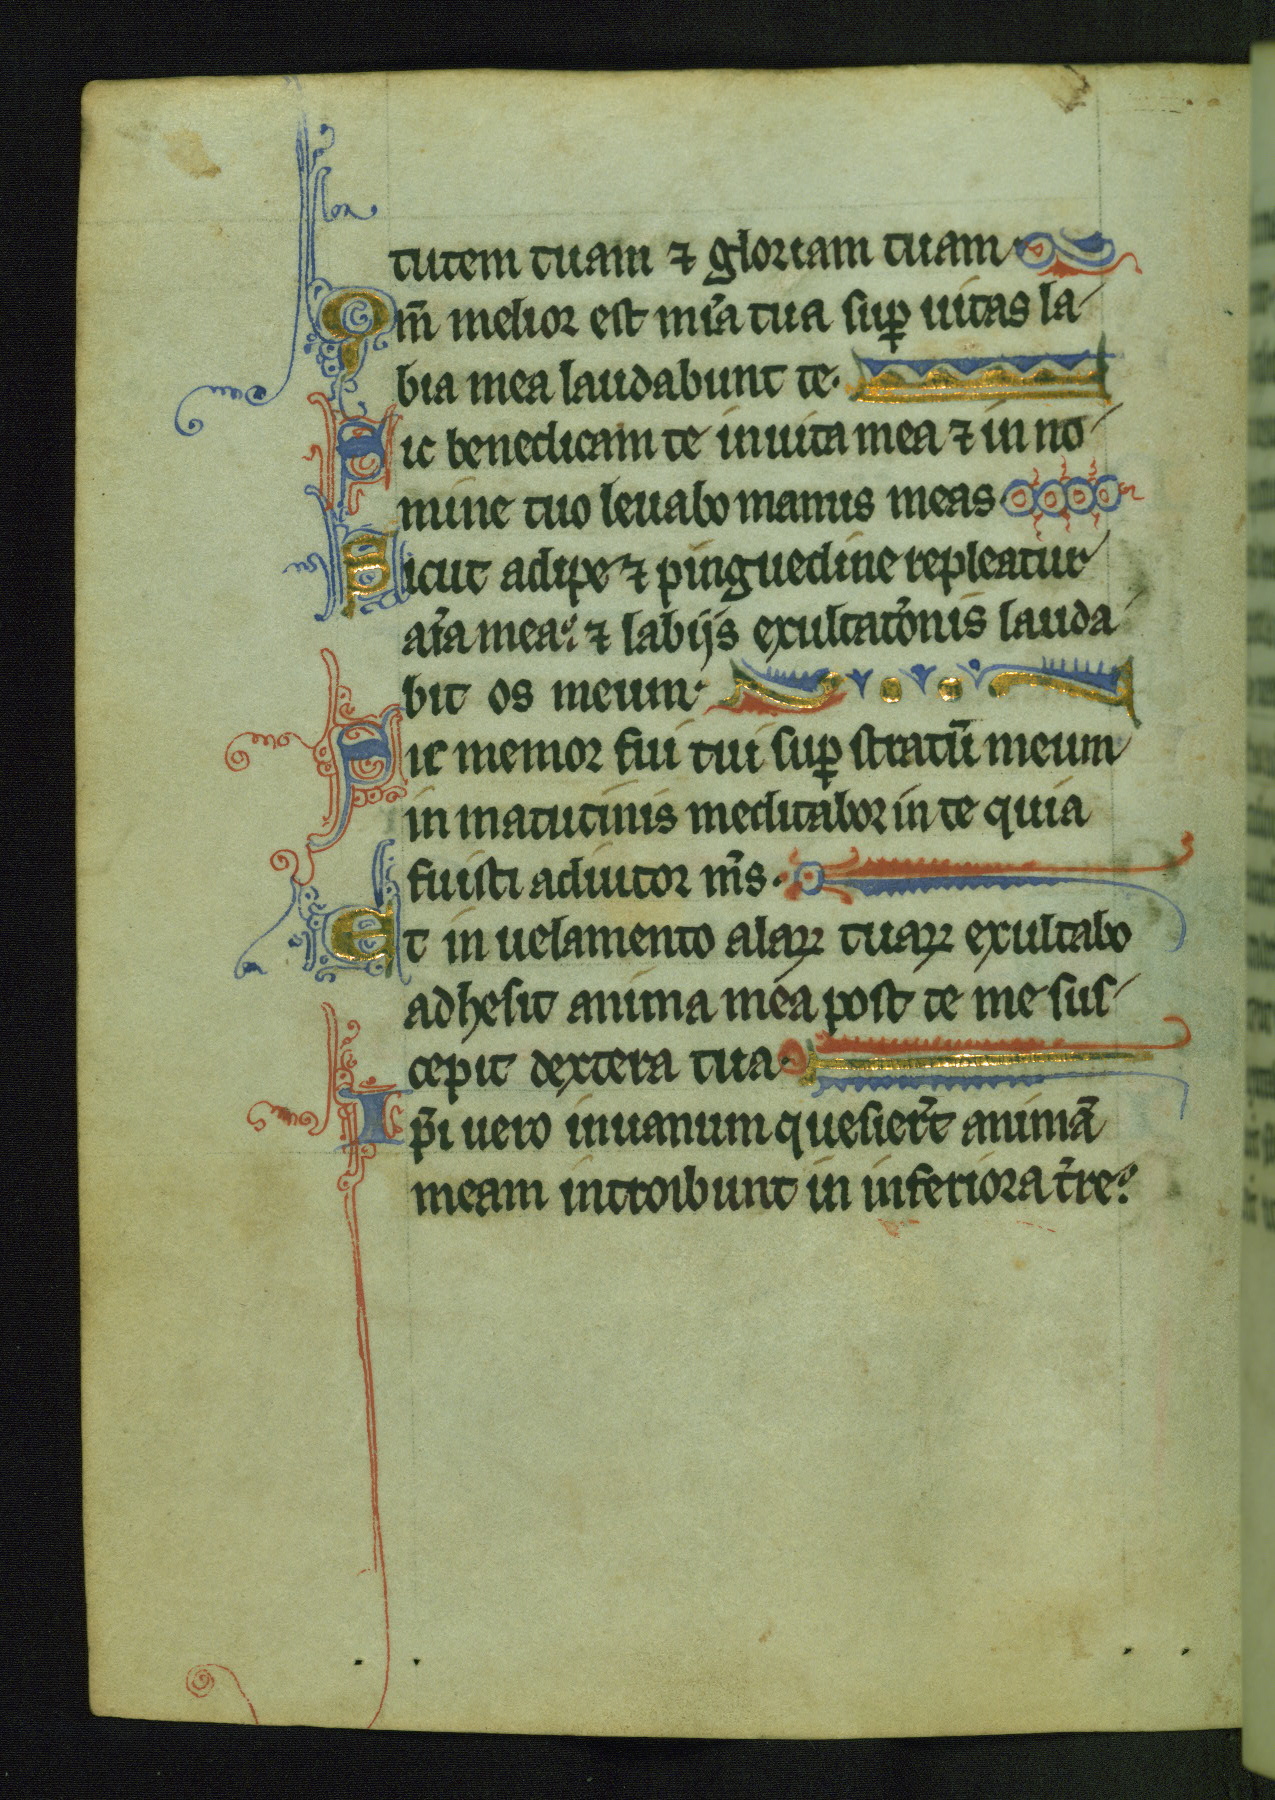 tutem tuam ⁊ gloriam tuam
Qm̄ melior est mīa tua suꝑ uitas la
bia mea laudabunt te.
Sic benedicam te in uita mea ⁊ in no
mine tuo leuabo manus meas.
Sicut adipe ⁊ pinguedine repleatur
aīa mea: ⁊ labijs exultatōnis lauda
bit os meum.
Sic memor fui tui suꝑ stratū meum
in matutinis meditabor in te quia
fuisti adiutor m̄s.
Et in uelamento alaꝝ tuaꝝ exultabo
adhesit anima mea post te me sus
cepit dextera tua.
Ip̄i uero in uanum quesier̄t animā
meam introibunt in inferiora t̄re: